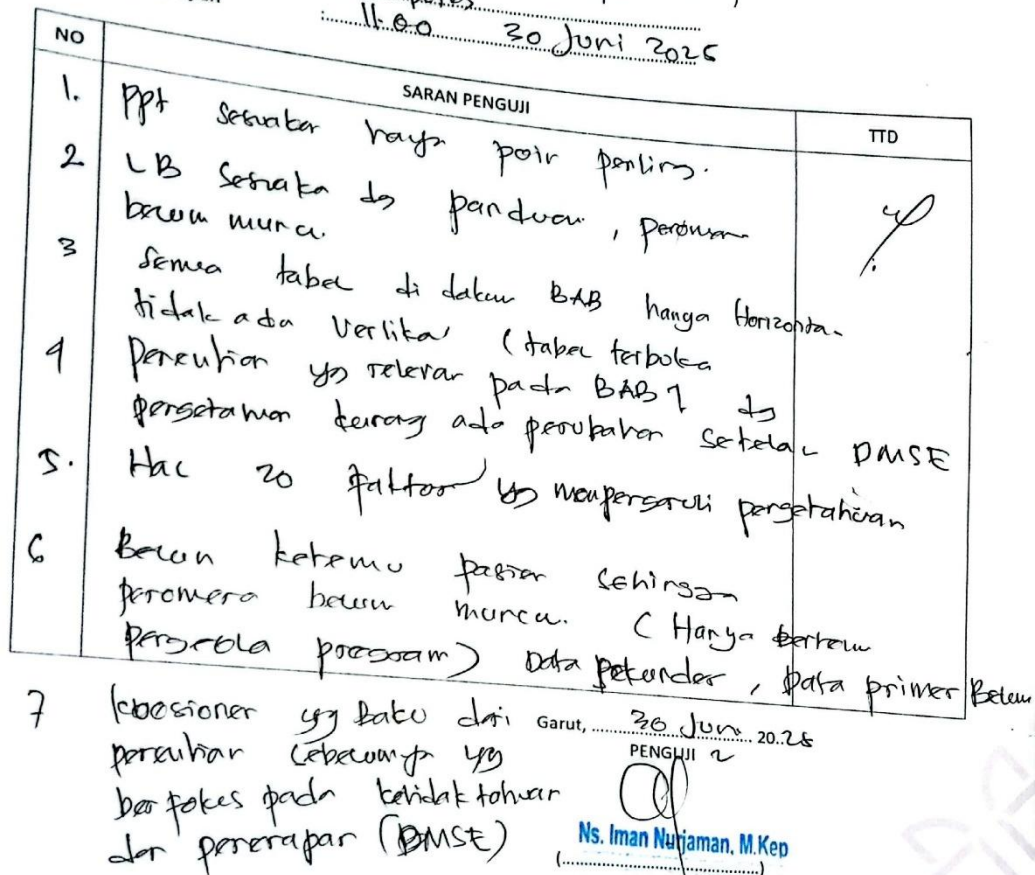 11.00 30 Juni 2025
NO SARAN PENGUJI TTD
1. PPt Sesuaikan hanya poin penting.
2 LB Sesuaikan dg panduan, penomena
belum muncul.
3 Semua tabel di dalam BAB hanya Horizontal
tidak ada Vertikal (tabel terbuka
4 Penelitian yg relevan pada BAB 1 dg
pengetahuan kurang ada perubahan Setelah DMSE
5. Hal 20 faktor yg mempengaruhi pengetahuan
6 Belum ketemu pasien sehingga
penomena belum muncul. (Hanya bertemu
pengelola program) Data Sekunder, Data primer Belum
7 kuesioner yg Baku dari
penelitian sebelumnya yg
berfokus pada ketidaktahuan
dan penerapan (DMSE)
Garut, 30 Juni 2025
PENGUJI 2
Ns. Iman Nurjaman, M.Kep
(....................................)